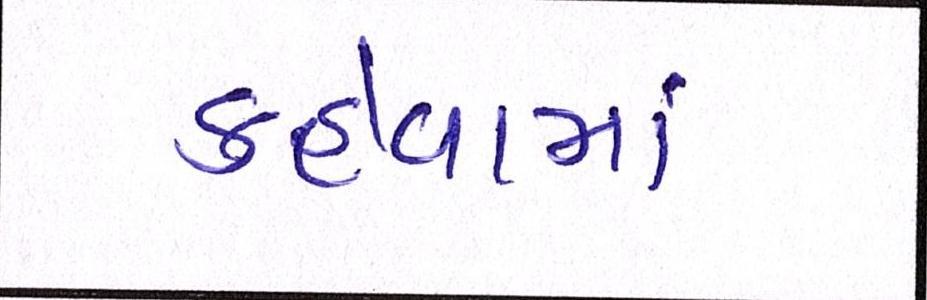 કહેવામાં